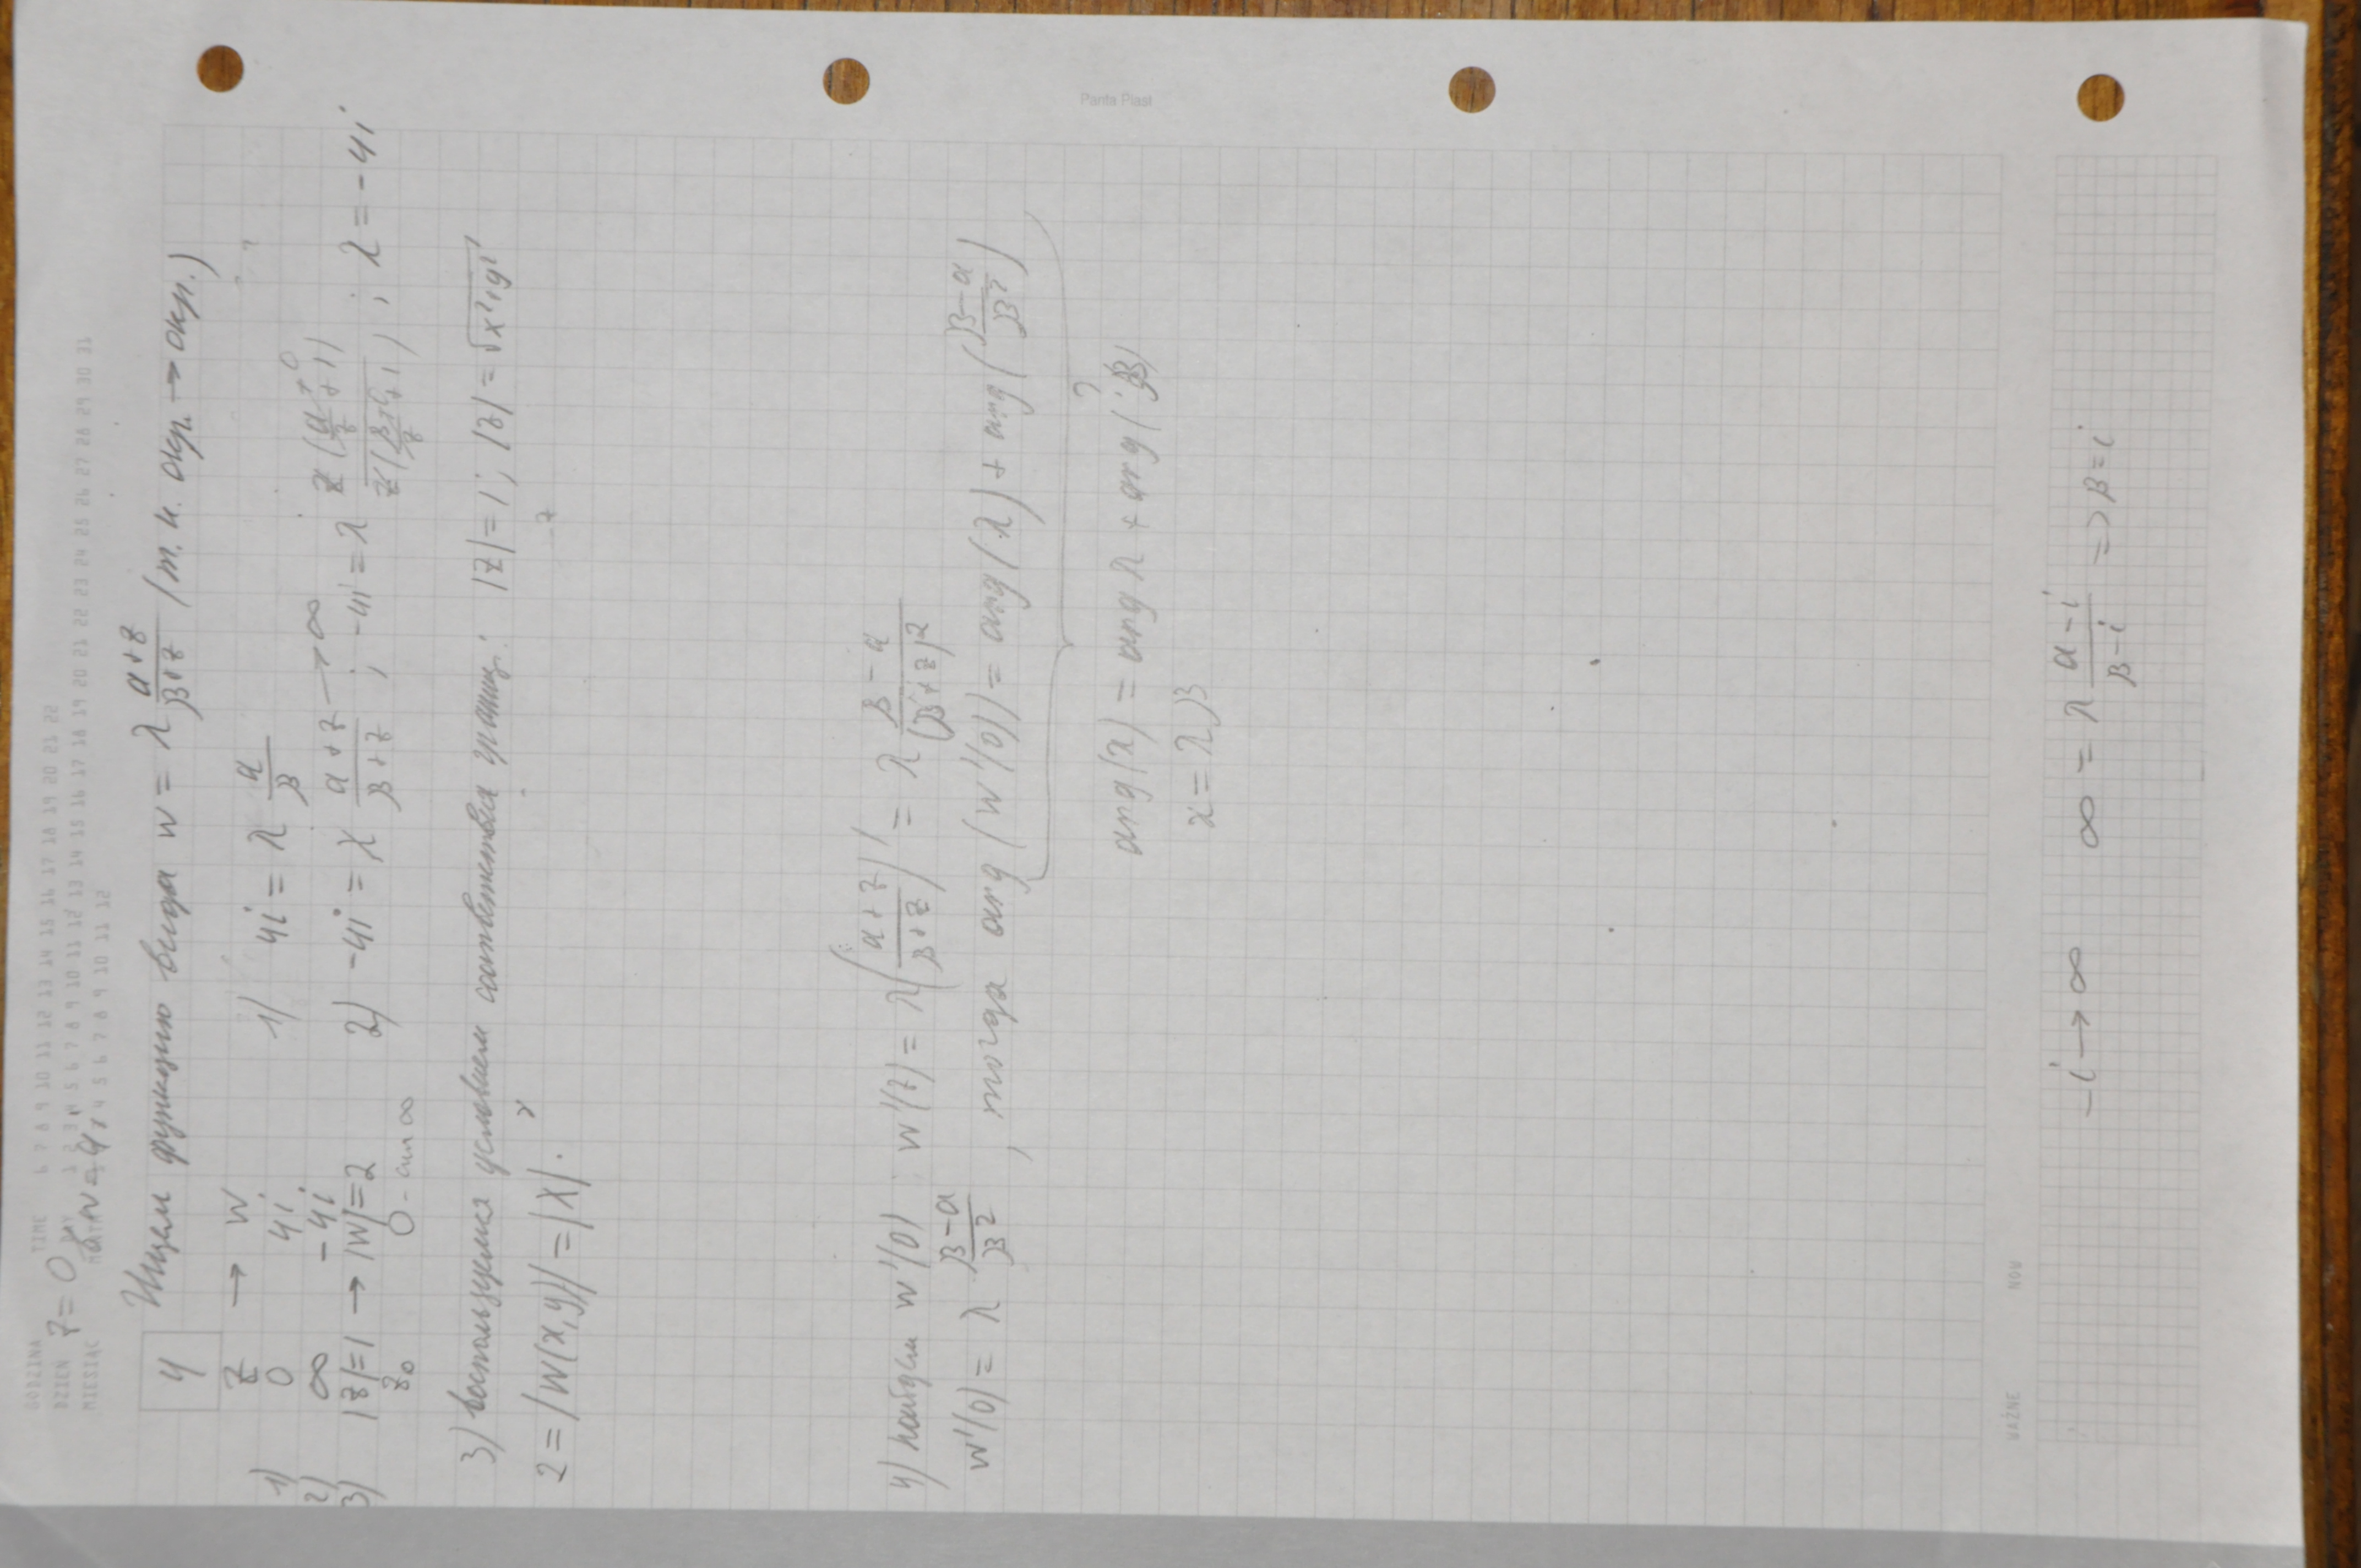 Panta Plast
GODZINA TIME 6 7 8 9 10 11 12 13 14 15 16 17 18 19 20 21 22
DZIEŃ DAY 1 2 3 4 5 6 7 8 9 10 11 12 13 14 15 16 17 18 19 20 21 22 23 24 25 26 27 28 29 30 31
MIESIĄC MONTH 1 2 3 4 5 6 7 8 9 10 11 12
z = 0
4 Ищем функцию вида w = λ (α+z)/(β+z) (т.к. окр. → окр.)
z → w
1) 0 4i
2) ∞ -4i
3) |z|=1 → |w|=2
z₀ 0 - или ∞
1) 4i = λ α/β
2) -4i = λ (α+z)/(β+z) → ∞ ; -4i = λ z(α/z + 1)/z(β/z + 1) ; λ = -4i
3) воспользуемся условием соответствия границ: |z|=1; |z| = √x²+y²
2 = |w(x,y)| = |λ|.
4) найдём w'(0) : w'(z) = λ((α+z)/(β+z))' = λ (β-α)/(β+z)²
w'(0) = λ (β-α)/β² , тогда arg(w'(0)) = arg(λ) + arg((β-α)/β²)
-i → ∞ ∞ = λ (α-i)/(β-i) => β=i
WAŻNE NOW